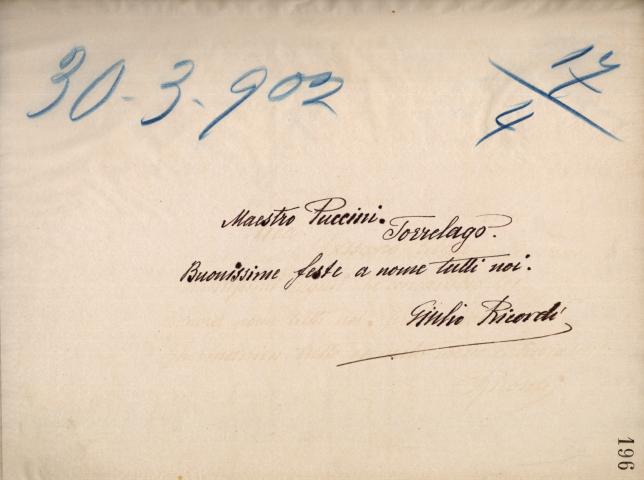 30-3-902
17
4
Maestro Puccini.
Torrelago.
Buonissime feste a nome tutti noi.
Giulio Ricordi
196